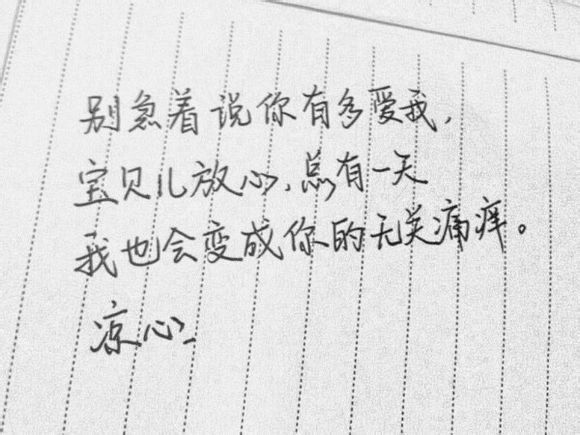 别急着说你有多爱我，
宝贝儿放心，总有一天
我也会变成你的无关痛痒。
凉心